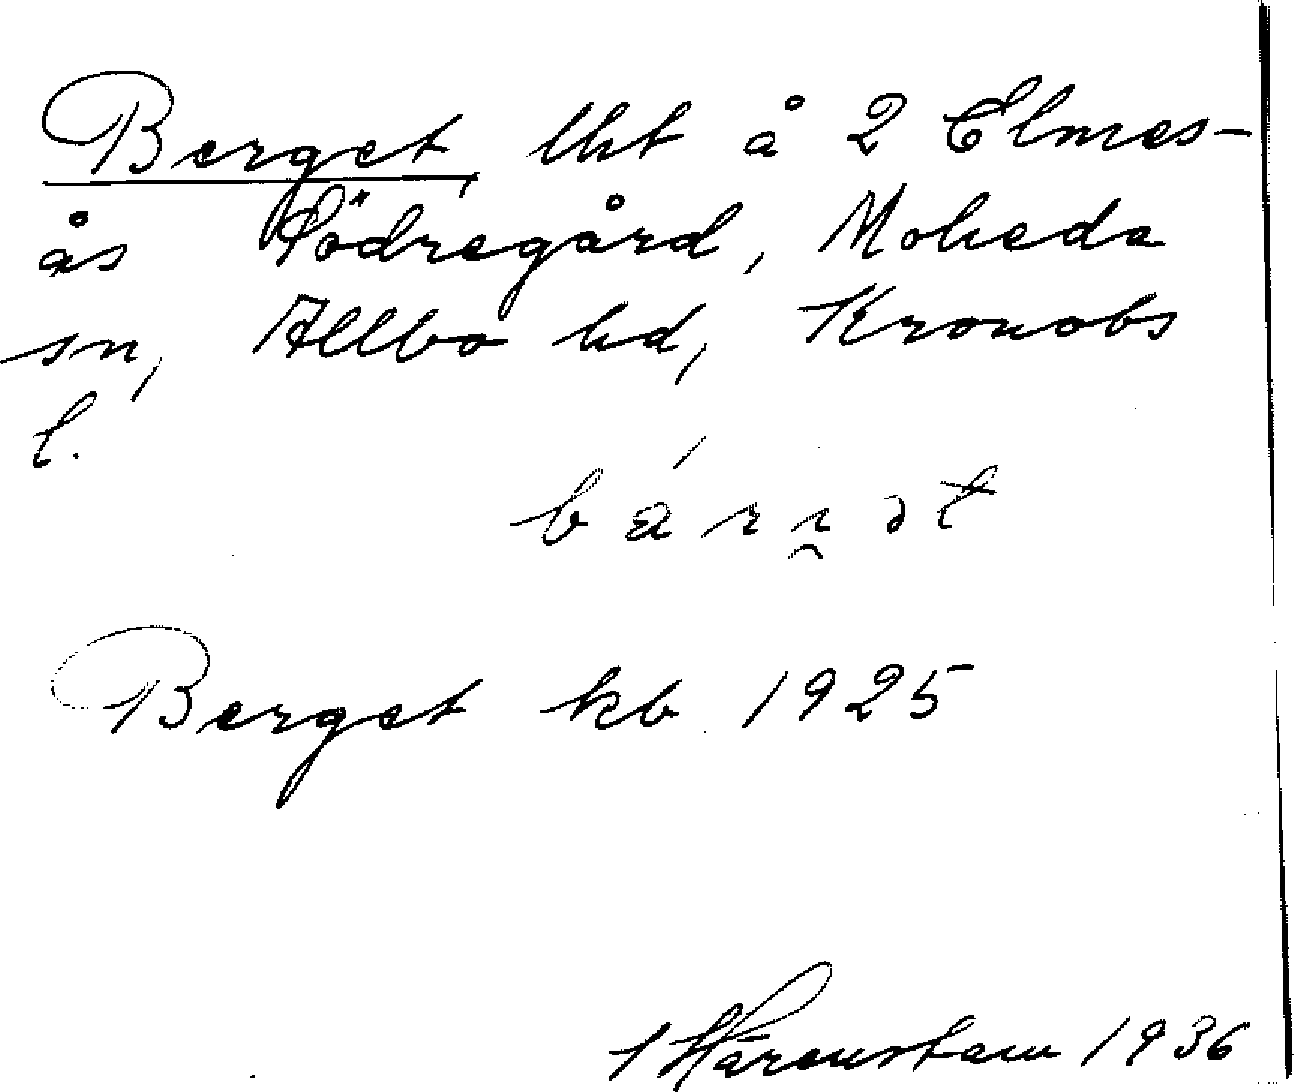 Berget, lht å 2 Elmes-
ås Södregård, Moheda
sn, Allbo hd, Kronobs
l.
Berget kb 1925
Härenstam 1936